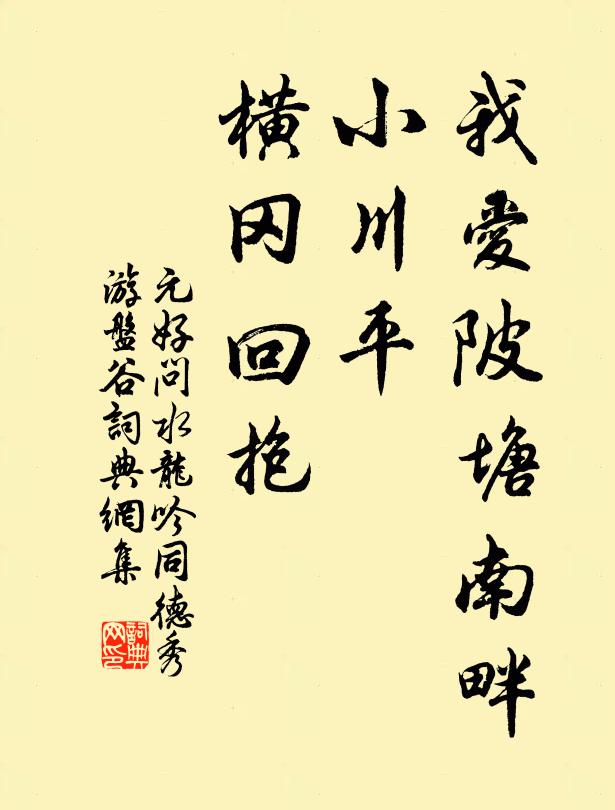 我愛陂塘南畔
小川平
橫冈回抱
元好问水龍吟同德秀
游盤谷詞典網集
詞典
网印